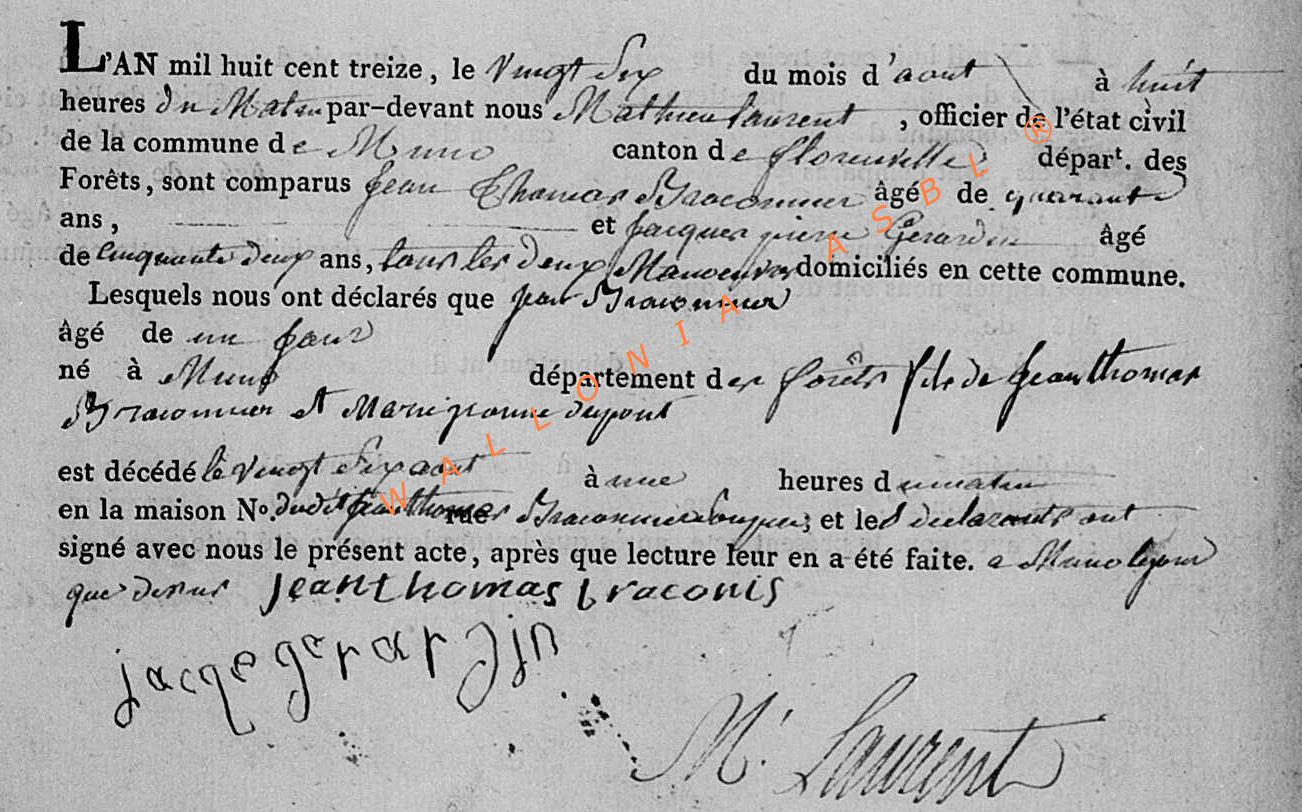 L'AN mil huit cent treize, le vingt six du mois d'aout à huit
heures du Matin par-devant nous Mathieu laurent, officier de l'état civil
de la commune de Muno canton de florenville départ. des
Forêts, sont comparus jean Thomas Braconnier âgé de quarante
ans, et jacques pierre Gerardin âgé
de cinquante deux ans, tous les deux Manoeuvres domiciliés en cette commune.
Lesquels nous ont déclarés que jean Braconnier
âgé de un jour
né à Muno département des forêts fils de jean thomas
Braconnier et Marie jeanne dupont
est décédé le vingt six aout à une heures du matin
en la maison No. dudit jean thomas rue Braconnier ; et les declarants ont
signé avec nous le présent acte, après que lecture leur en a été faite. a Muno le jour
que dessus jean thomas braconis
jacqe gerardjin
M. Laurent
WALLONIA ASBL ®